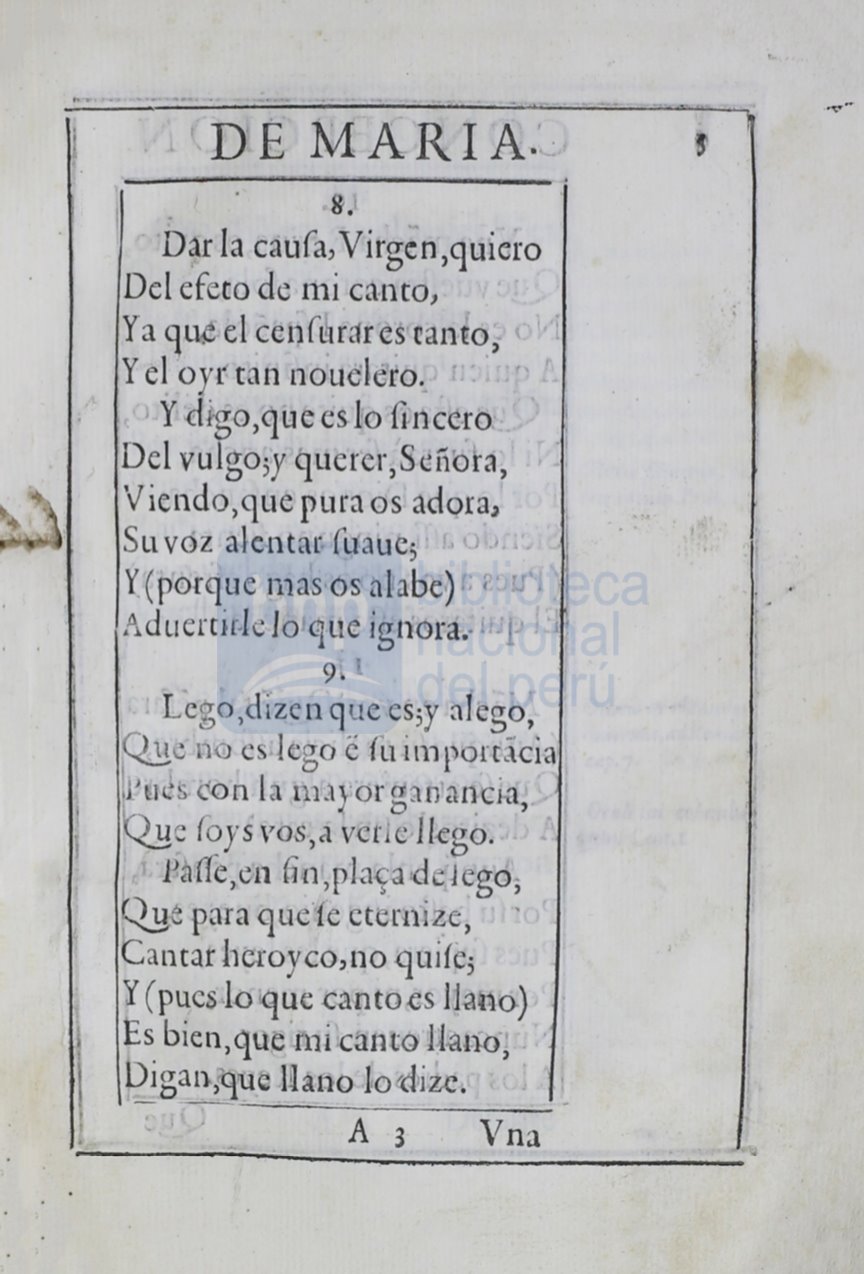 DE MARIA. 5
8.
Dar la cauſa, Virgen, quiero
Del efeto de mi canto,
Ya que el cenſurar es tanto,
Y el oyr tan nouelero.
Y digo, que es lo ſincero
Del vulgo; y querer, Señora,
Viendo, que pura os adora,
Su voz alentar ſuaue;
Y (porque mas os alabe)
Aduertirle lo que ignora.
9.
Lego, dizen que es; y alego,
Que no es lego ẽ ſu importãcia
Pues con la mayor ganancia,
Que ſoys vos, a verſe llego.
Paſſe, en fin, plaça de lego,
Que para que ſe eternize,
Cantar heroyco, no quiſe;
Y (pues lo que canto es llano)
Es bien, que mi canto llano,
Digan, que llano lo dize.
A 3 Vna
biblioteca
nacional
del perú